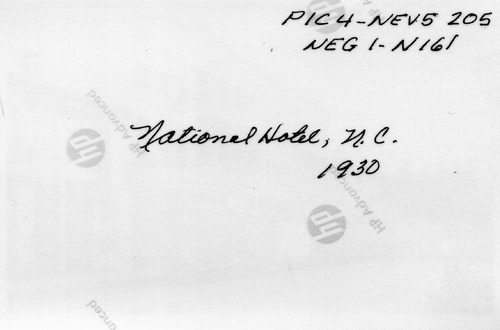 PIC 4-NEV5 205
NEG 1-N161
National Hotel, N.C.
1930
HP Advanced
hp
HP Advanced
hp
HP Advanced